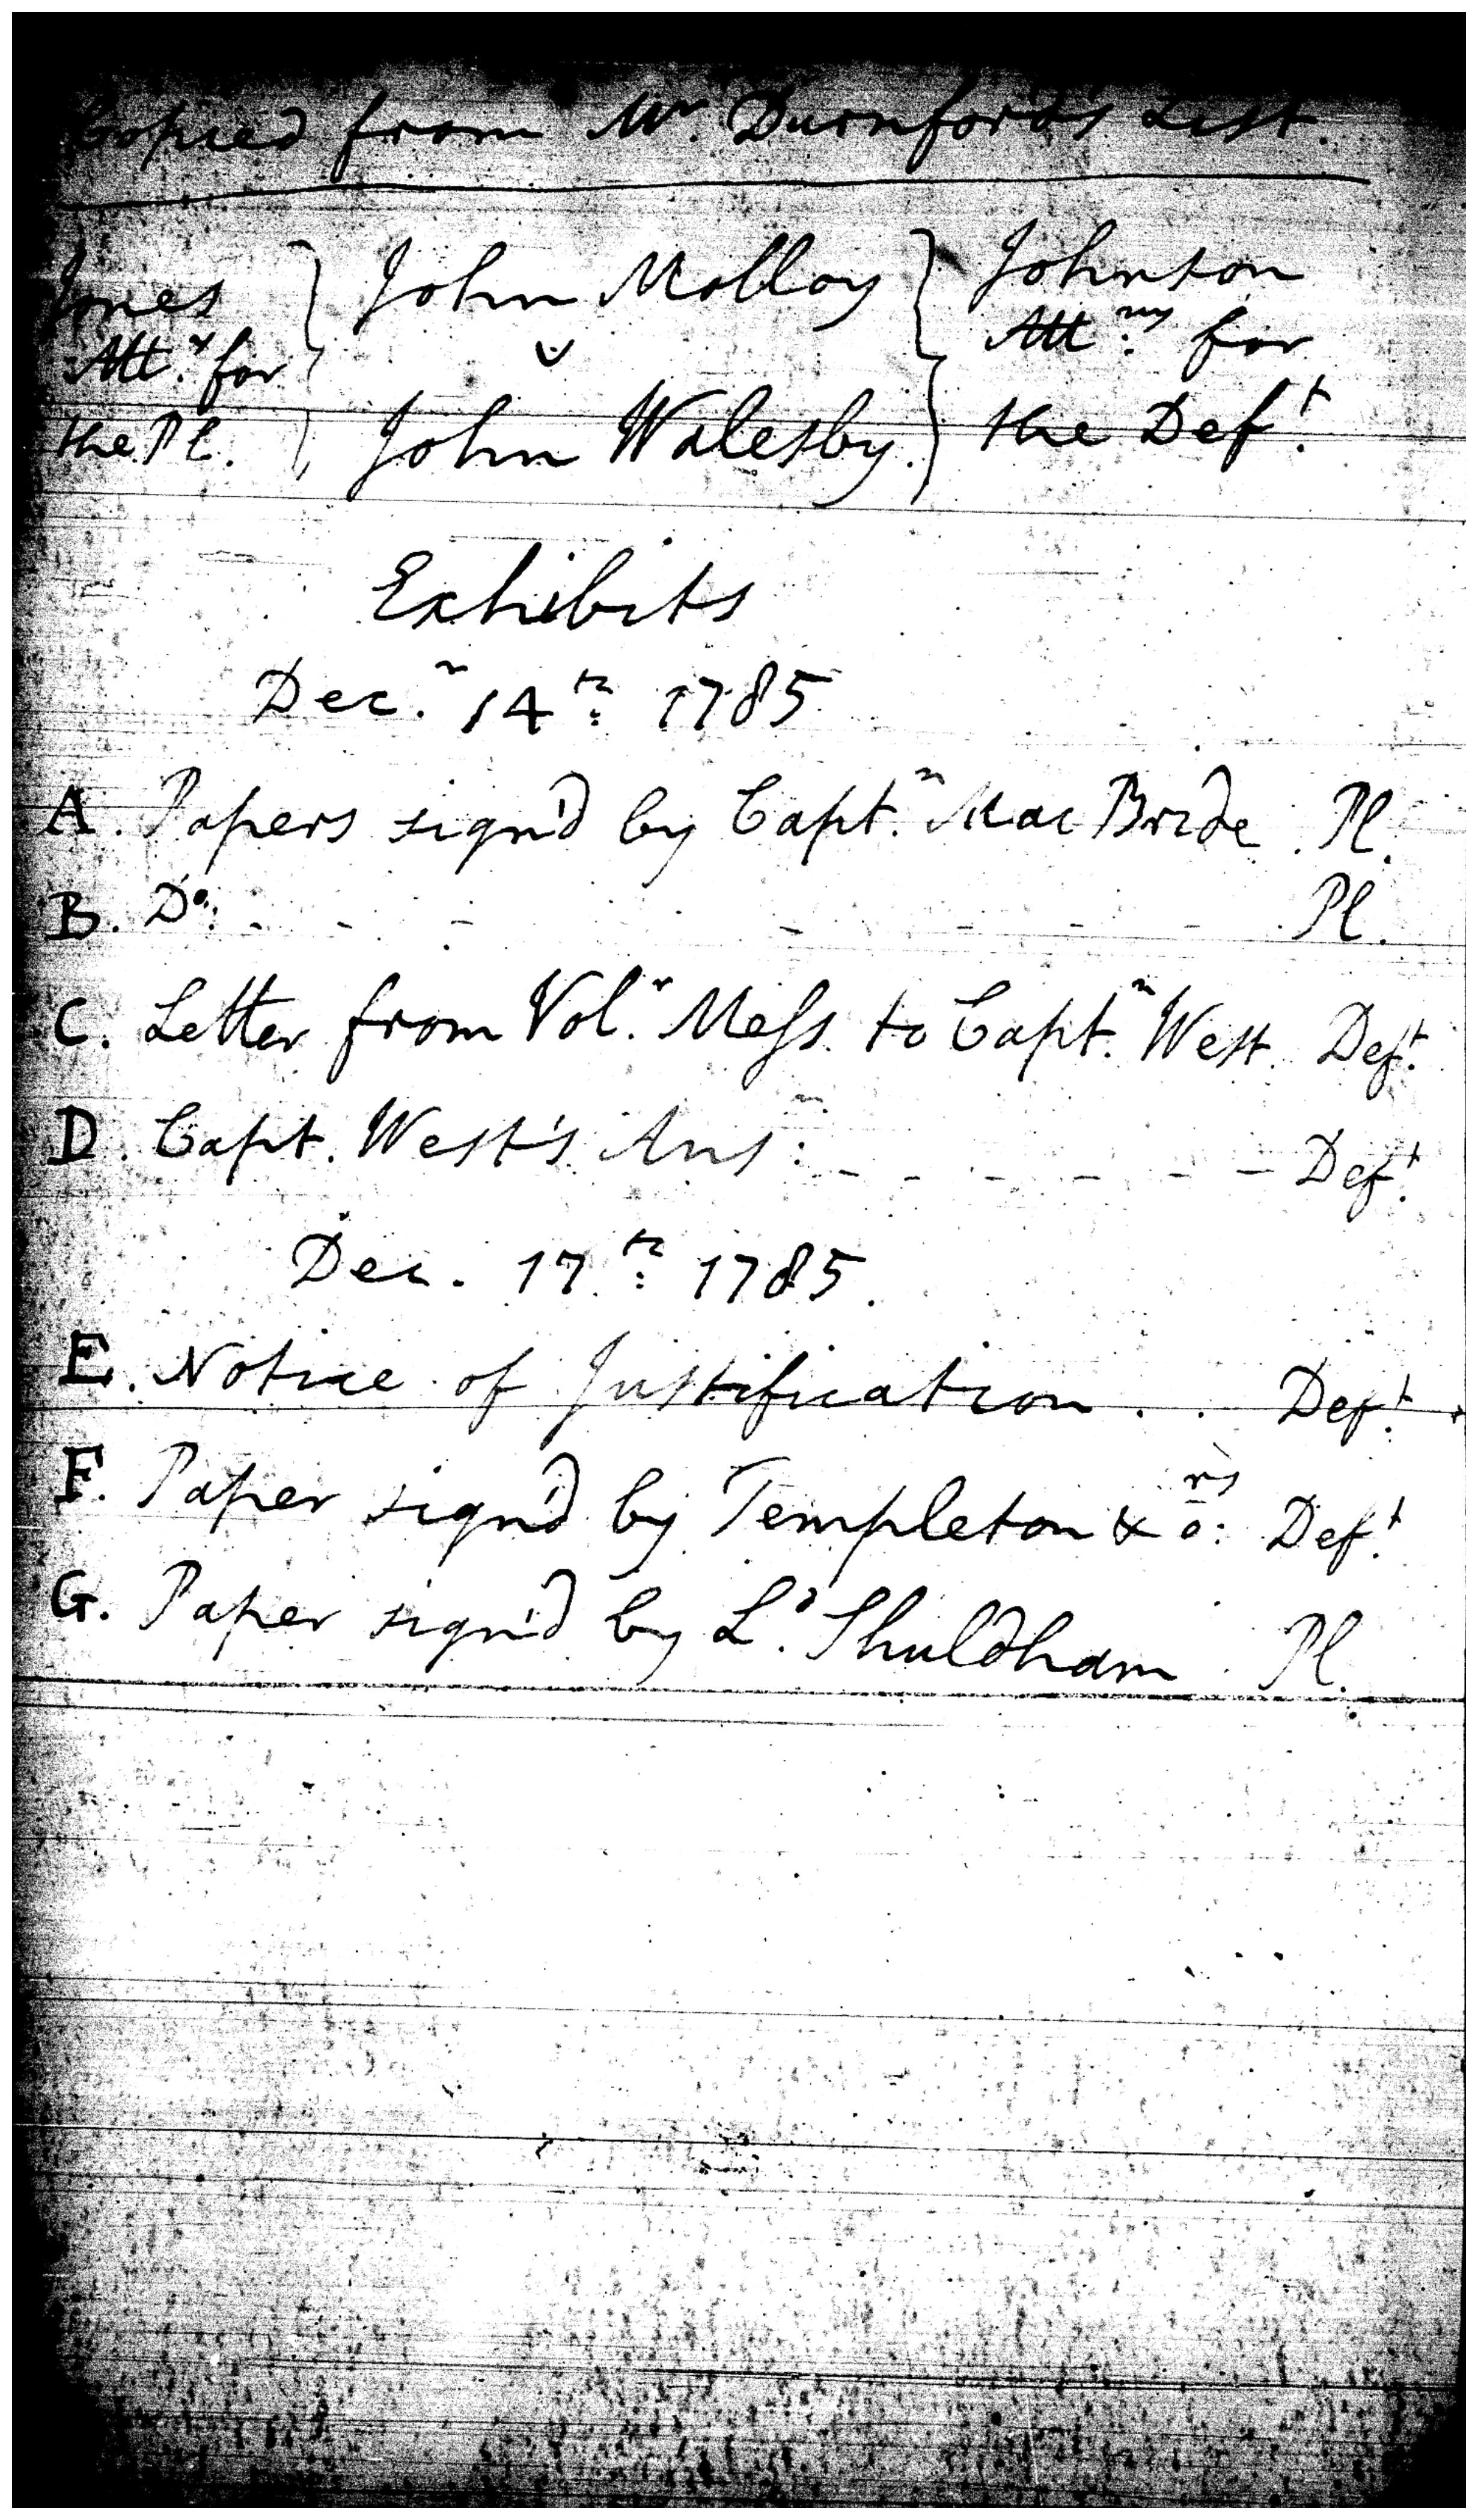 Copied from Mr. Durnford's List.
Jones } John Molloy } Johnson
Att.y for v Att.ny for
the Pl. John Walesby. the Def.t
Exhibits
Dec.r 14th: 1785
A. Papers sign'd by Capt.n Mac Bride. Pl.
B. Do: - - - - - - - Pl.
C. Letter from Vol.r Mess. to Capt.n West. Def.t
D. Capt. West's Ans: - - - - - - Def.t
Dec. 17th: 1785.
E. Notice of Justification . . Def.t
F. Paper sign'd by Templeton & ors: Def.t
G. Paper sign'd by Ld. Shuldham . Pl.